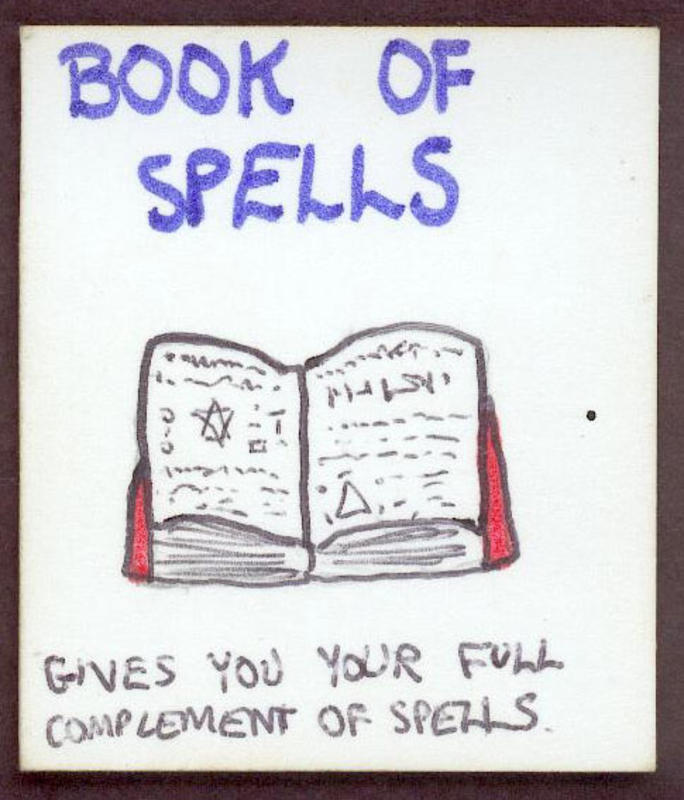 BOOK OF
SPELLS
GIVES YOU YOUR FULL
COMPLEMENT OF SPELLS.